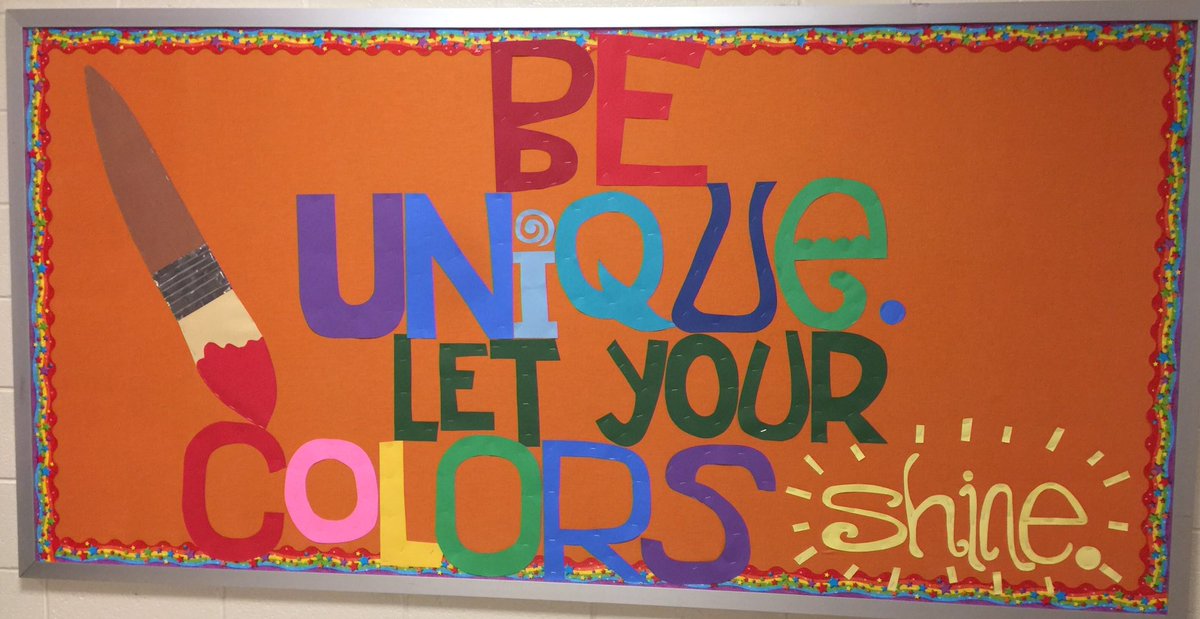 BE
UNiQUe.
LET YOUR
COLORS shine.